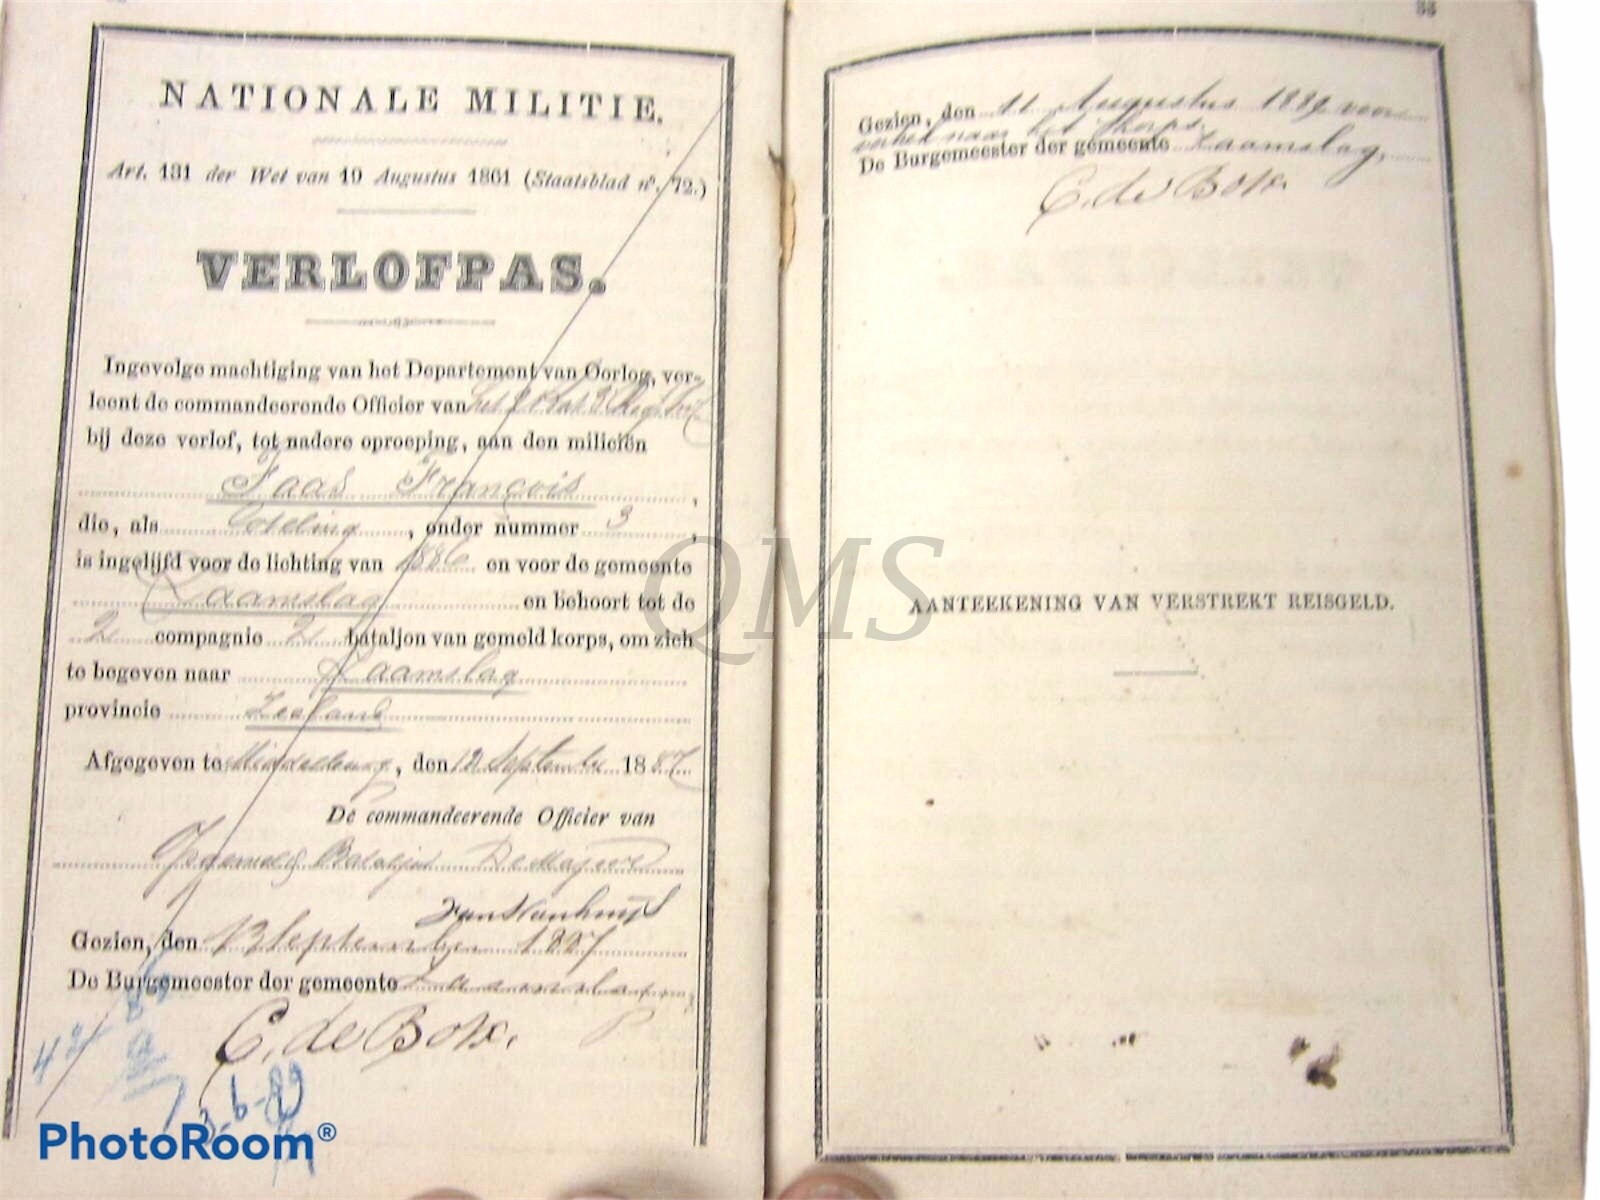 NATIONALE MILITIE.
Art. 131 der Wet van 19 Augustus 1861 (Staatsblad nº. 72.)
VERLOFPAS.
Ingevolge machtiging van het Departement van Oorlog, ver-
leent de commandeerende Officier van
bij deze verlof, tot nadere oproeping, aan den milicien
Faas François,
die, als Loteling, onder nummer 3,
is ingelijfd voor de lichting van 1886 en voor de gemeente
Zaamslag en behoort tot de
2 compagnie 2 bataljon van gemeld korps, om zich
te begeven naar Zaamslag
provincie Zeeland
Afgegeven te Middelburg, den 12 September 1887
De commandeerende Officier van
De Majoor
Gezien, den 13 September 1887
De Burgemeester der gemeente Zaamslag
C. de Bokx.
3-6-89
PhotoRoom®
Gezien, den 11 Augustus 1889 voor
vertrek naar het Korps
De Burgemeester der gemeente Zaamslag,
C. de Bokx.
AANTEEKENING VAN VERSTREKT REISGELD.
QMS